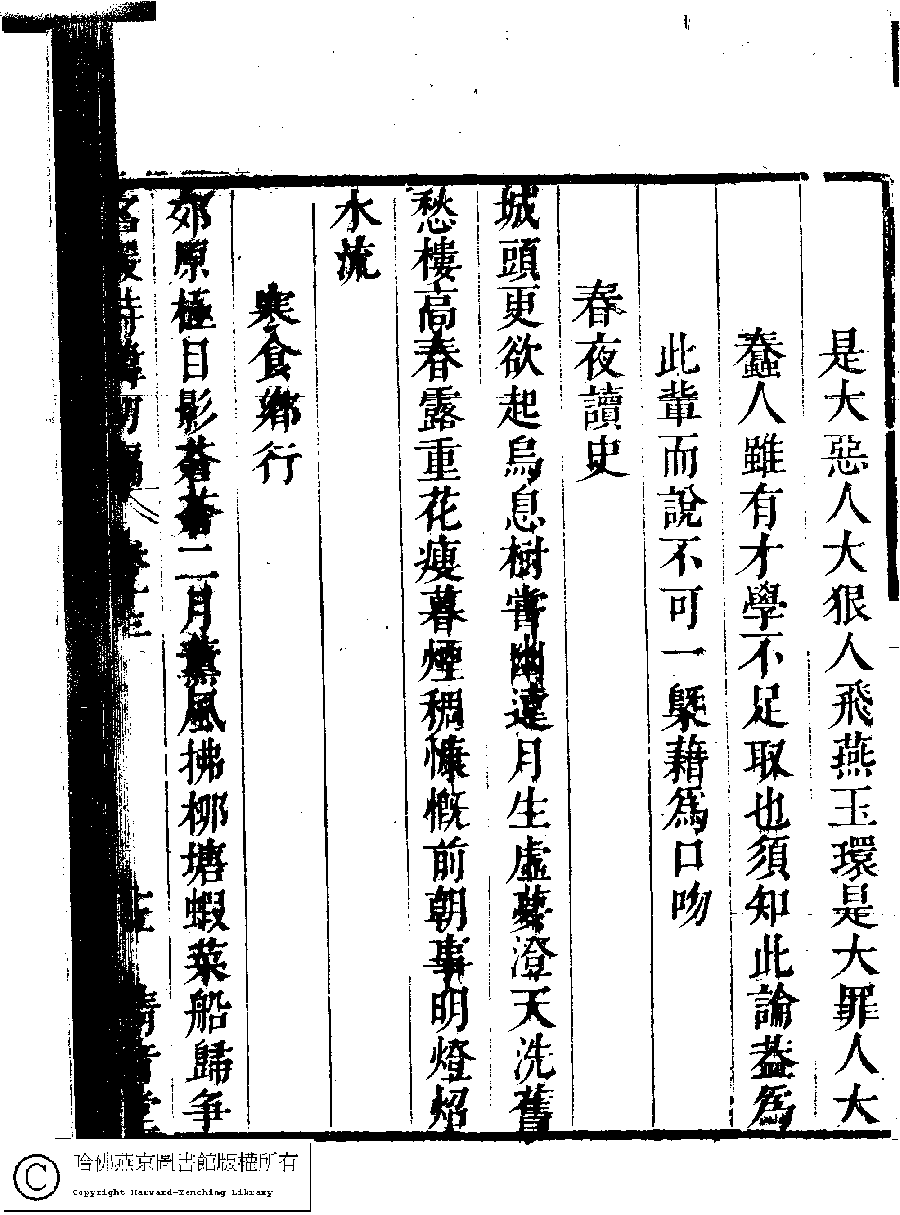 是大惡人大狠人飛燕玉環是大罪人大
蠢人雖有才學不足取也須知此論葢爲
此輩而說不可一槩藉爲口吻
春夜讀史
城頭更欲起烏息樹甞幽遠月生虛夢澄天洗舊
愁樓高春露重花瘦暮煙稠慷慨前朝事明燈炤
水流
寒食鄉行
郊原極目影蒼蒼二月薰風拂柳塘蝦菜船歸争
名媛詩緯初編
哈佛燕京圖書館版權所有
Copyright Harvard-Yenching Library